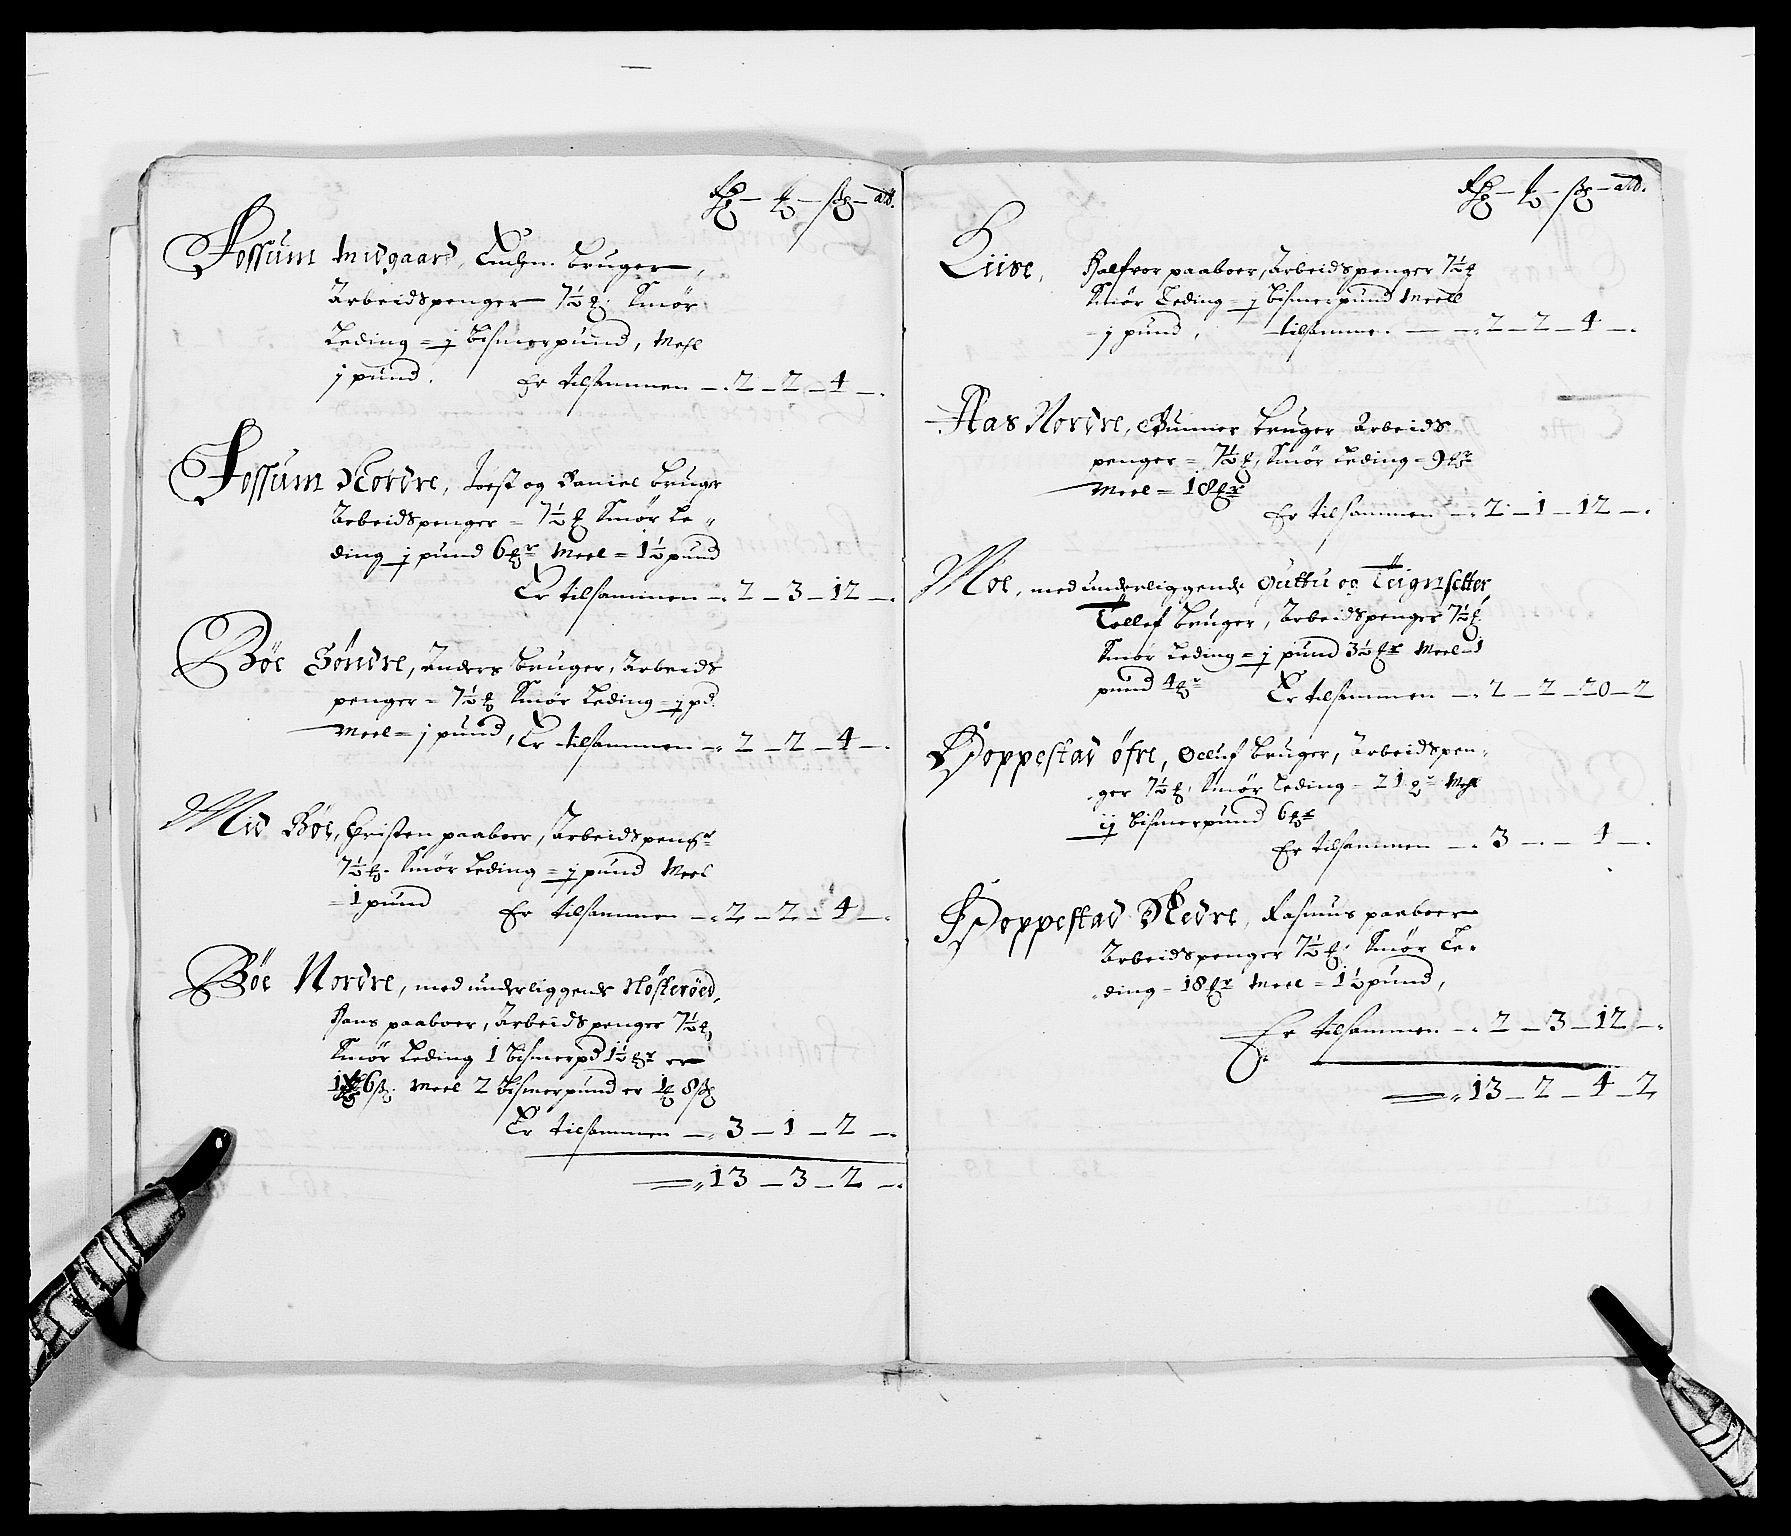 Rdr — ₰ — ß — alb.
Fossum Midgaard, Engh. bruger,
Arbeidspenger 7½ ₰. Smør
Leding = j bismerpund, Mehl
j pund. Er tilsammen — 2 — 2 — 4 —
Fossum Nordre, Joest og Daniel bruger
Arbeidspenger = 7½ ₰ Smør Le„
ding j pund 6 ₰r Meel = 1½ pund
Er tilsammen — 2 — 3 — 12 —
Böe Söndre, Anders bruger, Arbeids
penger = 7½ ₰ Smør Leding = j pd.
Meel = j pund, Er tilsammen — 2 — 2 — 4 —
Mid Böe, Christen paaboer, Arbeidspengr
7½ ₰. Smør Leding = j pund Meel
= 1 pund Er tilsammen — 2 — 2 — 4 —
Böe Nordre, med underliggende Nösteröed,
Hans paaboer, Arbeidspenger 7½ ₰
Smør Leding 1 bismerpd 1½ ₰r er
6 ß. Meel 2 bismerpund er 1 ₰ 8 ß
Er tilsammen — 3 — 1 — 2 —
13 — 3 — 2 —
Rdr — ₰ — ß — alb.
Liise, Halfvor paaboer, Arbeidspenger 7½ ₰
Smør Leding = j bismerpund Meell
= j pund, tilsammen — 2 — 2 — 4 —
Aas Nordre, Gunner bruger Arbeids
penger = 7½ ₰, Smør Leding = 9 ₰r
Meel = 18 ₰r
Er tilsammen — 2 — 1 — 12 —
Moe, med underliggende Guttu og Teignsetter,
Tollef bruger, Arbeidspenger 7½ ₰.
Smør Leding = j pund 3½ ₰r Meel = 1
pund 4 ₰r Er tilsammen — 2 — 2 — 20 — 2
Hoppestad Øfre, Oeluf bruger, Arbeidspen„
ger 7½ ₰, Smør Leding = 21 ₰r Mehl
ij bismerpund 6 ₰r
Er tilsammen — 3 — — 1 —
Hoppestad Nedre, Rasmus paaboer
Arbeidspenger 7½ ₰. Smør Le„
ding = 18 ₰r Meel = 1½ pund,
Er tilsammen — 2 — 3 — 12 —
13 — 2 — 4 — 2